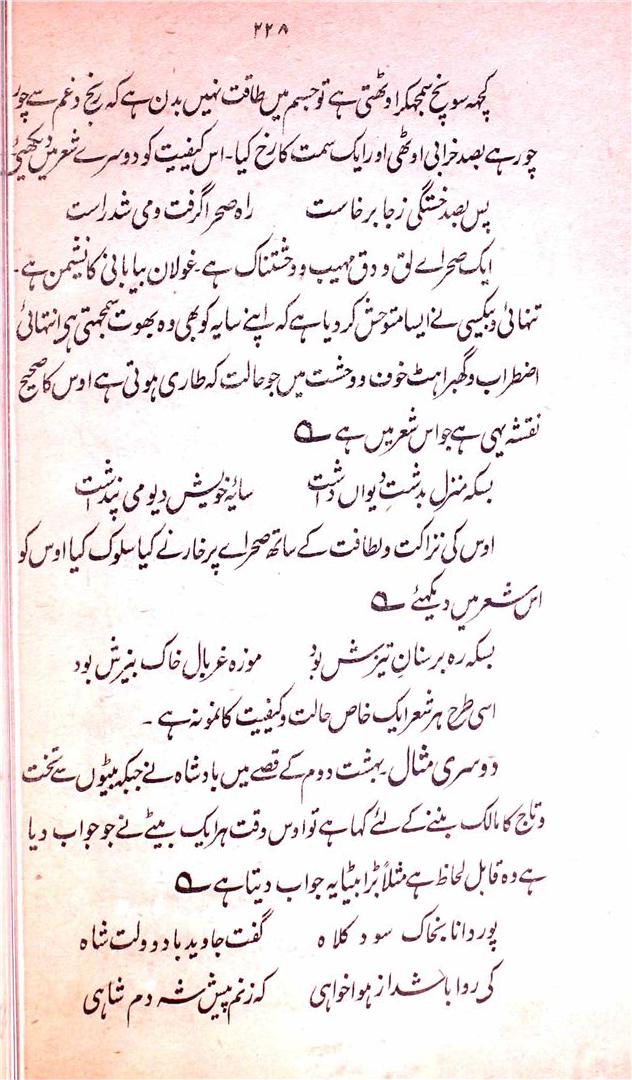 ۲۲۸
کچھہ سونچ سمجھکر اوٹھتی ہے تو جسم میں طاقت نہیں بدن ہے کہ رنج و غم سے چور
چور ہے بصد خرابی اوٹھی اور ایک سمت کا رخ کیا۔ اس کیفیت کو دوسرے شعر میں دیکھیئے
پس بصد خستگی ز جا برخاست راہ صحرا گرفت و می شد راست
ایک صحراے لق و دق مہیب و وحشتناک ہے۔ غولان بیابانی کا نشیمن ہے۔
تنہائی و بیکسی نے ایسا متوحش کر دیا ہے کہ اپنے سایہ کو بھی وہ بھوت سمجھتی ہی انتہائی
اضطراب و گھبراہٹ خوف و وحشت میں جو حالت کہ طاری ہوتی ہے اوس کا صحیح
نقشہ یہی ہے جو اس شعر میں ہے ؎
بسکہ منزل بدشتِ دیواں داشت سایۂ خویش دیو می پنداشت
اوس کی نزاکت و لطافت کے ساتھ صحراے پرخار نے کیا سلوک کیا اوس کو
اس شعر میں دیکھئے ؎
بسکہ رہ بر سنانِ تیزش بود موزہ غربال خاک بیزش بود
اسی طرح ہر شعر ایک خاص حالت و کیفیت کا نمونہ ہے ۔
دوسری مثال۔ بہشت دوم کے قصے میں بادشاہ نے جبکہ بیٹوں سے تخت
و تاج کا مالک بننے کے لئے کہا ہے تو اوس وقت ہر ایک بیٹے نے جو جواب دیا
ہے وہ قابل لحاظ ہے مثلاً بڑا بیٹا یہ جواب دیتا ہے ؎
پور دانا بخاک سود کلاہ گفت جاوید باد دولت شاہ
کی روا باشد از ہوا خواہی کہ زنم پیش شہ دم شاہی